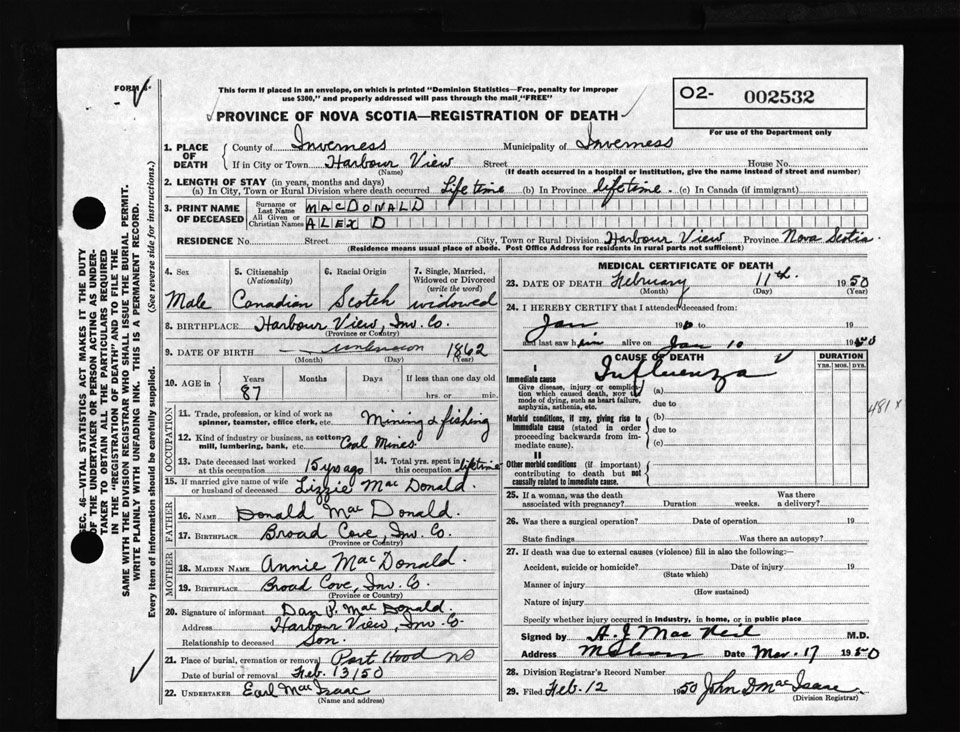 FORM
This form if placed in an envelope, on which is printed "Dominion Statistics—Free, penalty for improper
use $300," and properly addressed will pass through the mail "FREE"
O2- 002532
For use of the Department only
PROVINCE OF NOVA SCOTIA—REGISTRATION OF DEATH
1. PLACE OF DEATH { County of Inverness Municipality of Inverness
If in City or Town Harbour View Street House No.
(Name) (If death occurred in a hospital or institution, give the name instead of street and number)
2. LENGTH OF STAY (in years, months and days)
(a) In City, Town or Rural Division where death occurred Lifetime (b) In Province lifetime. (c) In Canada (if immigrant)
3. PRINT NAME OF DECEASED { Surname or Last Name MACDONALD
All Given or Christian Names ALEX D
RESIDENCE No. Street City, Town or Rural Division Harbour View Province Nova Scotia.
(Residence means usual place of abode. Post Office Address for residents in rural parts not sufficient)
4. Sex Male
5. Citizenship (Nationality) Canadian
6. Racial Origin Scotch
7. Single, Married, Widowed or Divorced (write the word) widowed
8. BIRTHPLACE Harbour View, Inv. Co.
(Province or Country)
9. DATE OF BIRTH unknown 1862
(Month) (Day) (Year)
10. AGE in { Years 87 Months Days If less than one day old hrs. or min.
OCCUPATION
11. Trade, profession, or kind of work as spinner, teamster, office clerk, etc. Mining & fishing
12. Kind of industry or business, as cotton mill, lumbering, bank, etc. Coal Mines
13. Date deceased last worked at this occupation 15 yrs ago
14. Total yrs. spent in this occupation lifetime
15. If married give name of wife or husband of deceased Lizzie MacDonald.
FATHER
16. NAME Donald MacDonald.
17. BIRTHPLACE Broad Cove, Inv. Co.
(Province or Country)
MOTHER
18. MAIDEN NAME Annie MacDonald.
19. BIRTHPLACE Broad Cove, Inv. Co
(Province or Country)
20. Signature of informant Dan R. MacDonald.
Address Harbour View, Inv. Co
Relationship to deceased Son.
21. Place of burial, cremation or removal Port Hood NS
Date of burial or removal Feb. 13/50
22. UNDERTAKER Earl MacIsaac
(Name and address)
MEDICAL CERTIFICATE OF DEATH
23. DATE OF DEATH February 11th. 1950
(Month) (Day) (Year)
24. I HEREBY CERTIFY that I attended deceased from:
Jan 19 to 19
and last saw him alive on Jan 10 1950
CAUSE OF DEATH
DURATION
YRS. MOS. DYS.
Influenza
I
Immediate cause (a)
Give disease, injury or complication which caused death, NOT the mode of dying, such as heart failure, asphyxia, asthenia, etc.
due to
Morbid conditions, if any, giving rise to immediate cause (stated in order proceeding backwards from immediate cause). (b)
due to
(c)
II
Other morbid conditions (if important) contributing to death but not causally related to immediate cause.
481 x
25. If a woman, was the death associated with pregnancy? Duration weeks. Was there a delivery?
26. Was there a surgical operation? Date of operation 19
State findings Was there an autopsy?
27. If death was due to external causes (violence) fill in also the following:—
Accident, suicide or homicide? Date of injury 19
(State which)
Manner of injury
(How sustained)
Nature of injury
Specify whether injury occurred in industry, in home, or in public place
Signed by A. J. MacNeil M.D.
Address Date Mar. 17 1950
28. Division Registrar's Record Number
29. Filed Feb. 12 1950 John D MacIsaac.
(Division Registrar)
SEC. 46—VITAL STATISTICS ACT MAKES IT THE DUTY
OF THE UNDERTAKER OR PERSON ACTING AS UNDER-
TAKER TO OBTAIN ALL THE PARTICULARS REQUIRED
IN THE "REGISTRATION OF DEATH" AND TO FILE THE
SAME WITH THE DIVISION REGISTRAR WHO SHALL ISSUE THE BURIAL PERMIT.
WRITE PLAINLY WITH UNFADING INK. THIS IS A PERMANENT RECORD.
Every item of information should be carefully supplied. (See reverse side for instructions.)